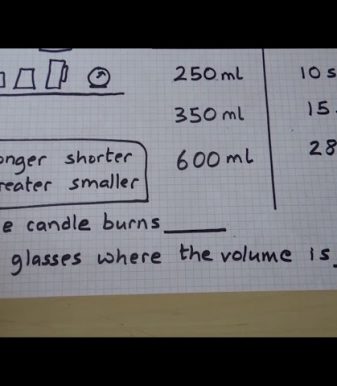 250 ml 10 s
350 ml 15
600 ml 28
onger shorter
reater smaller
e candle burns
glasses where the volume is